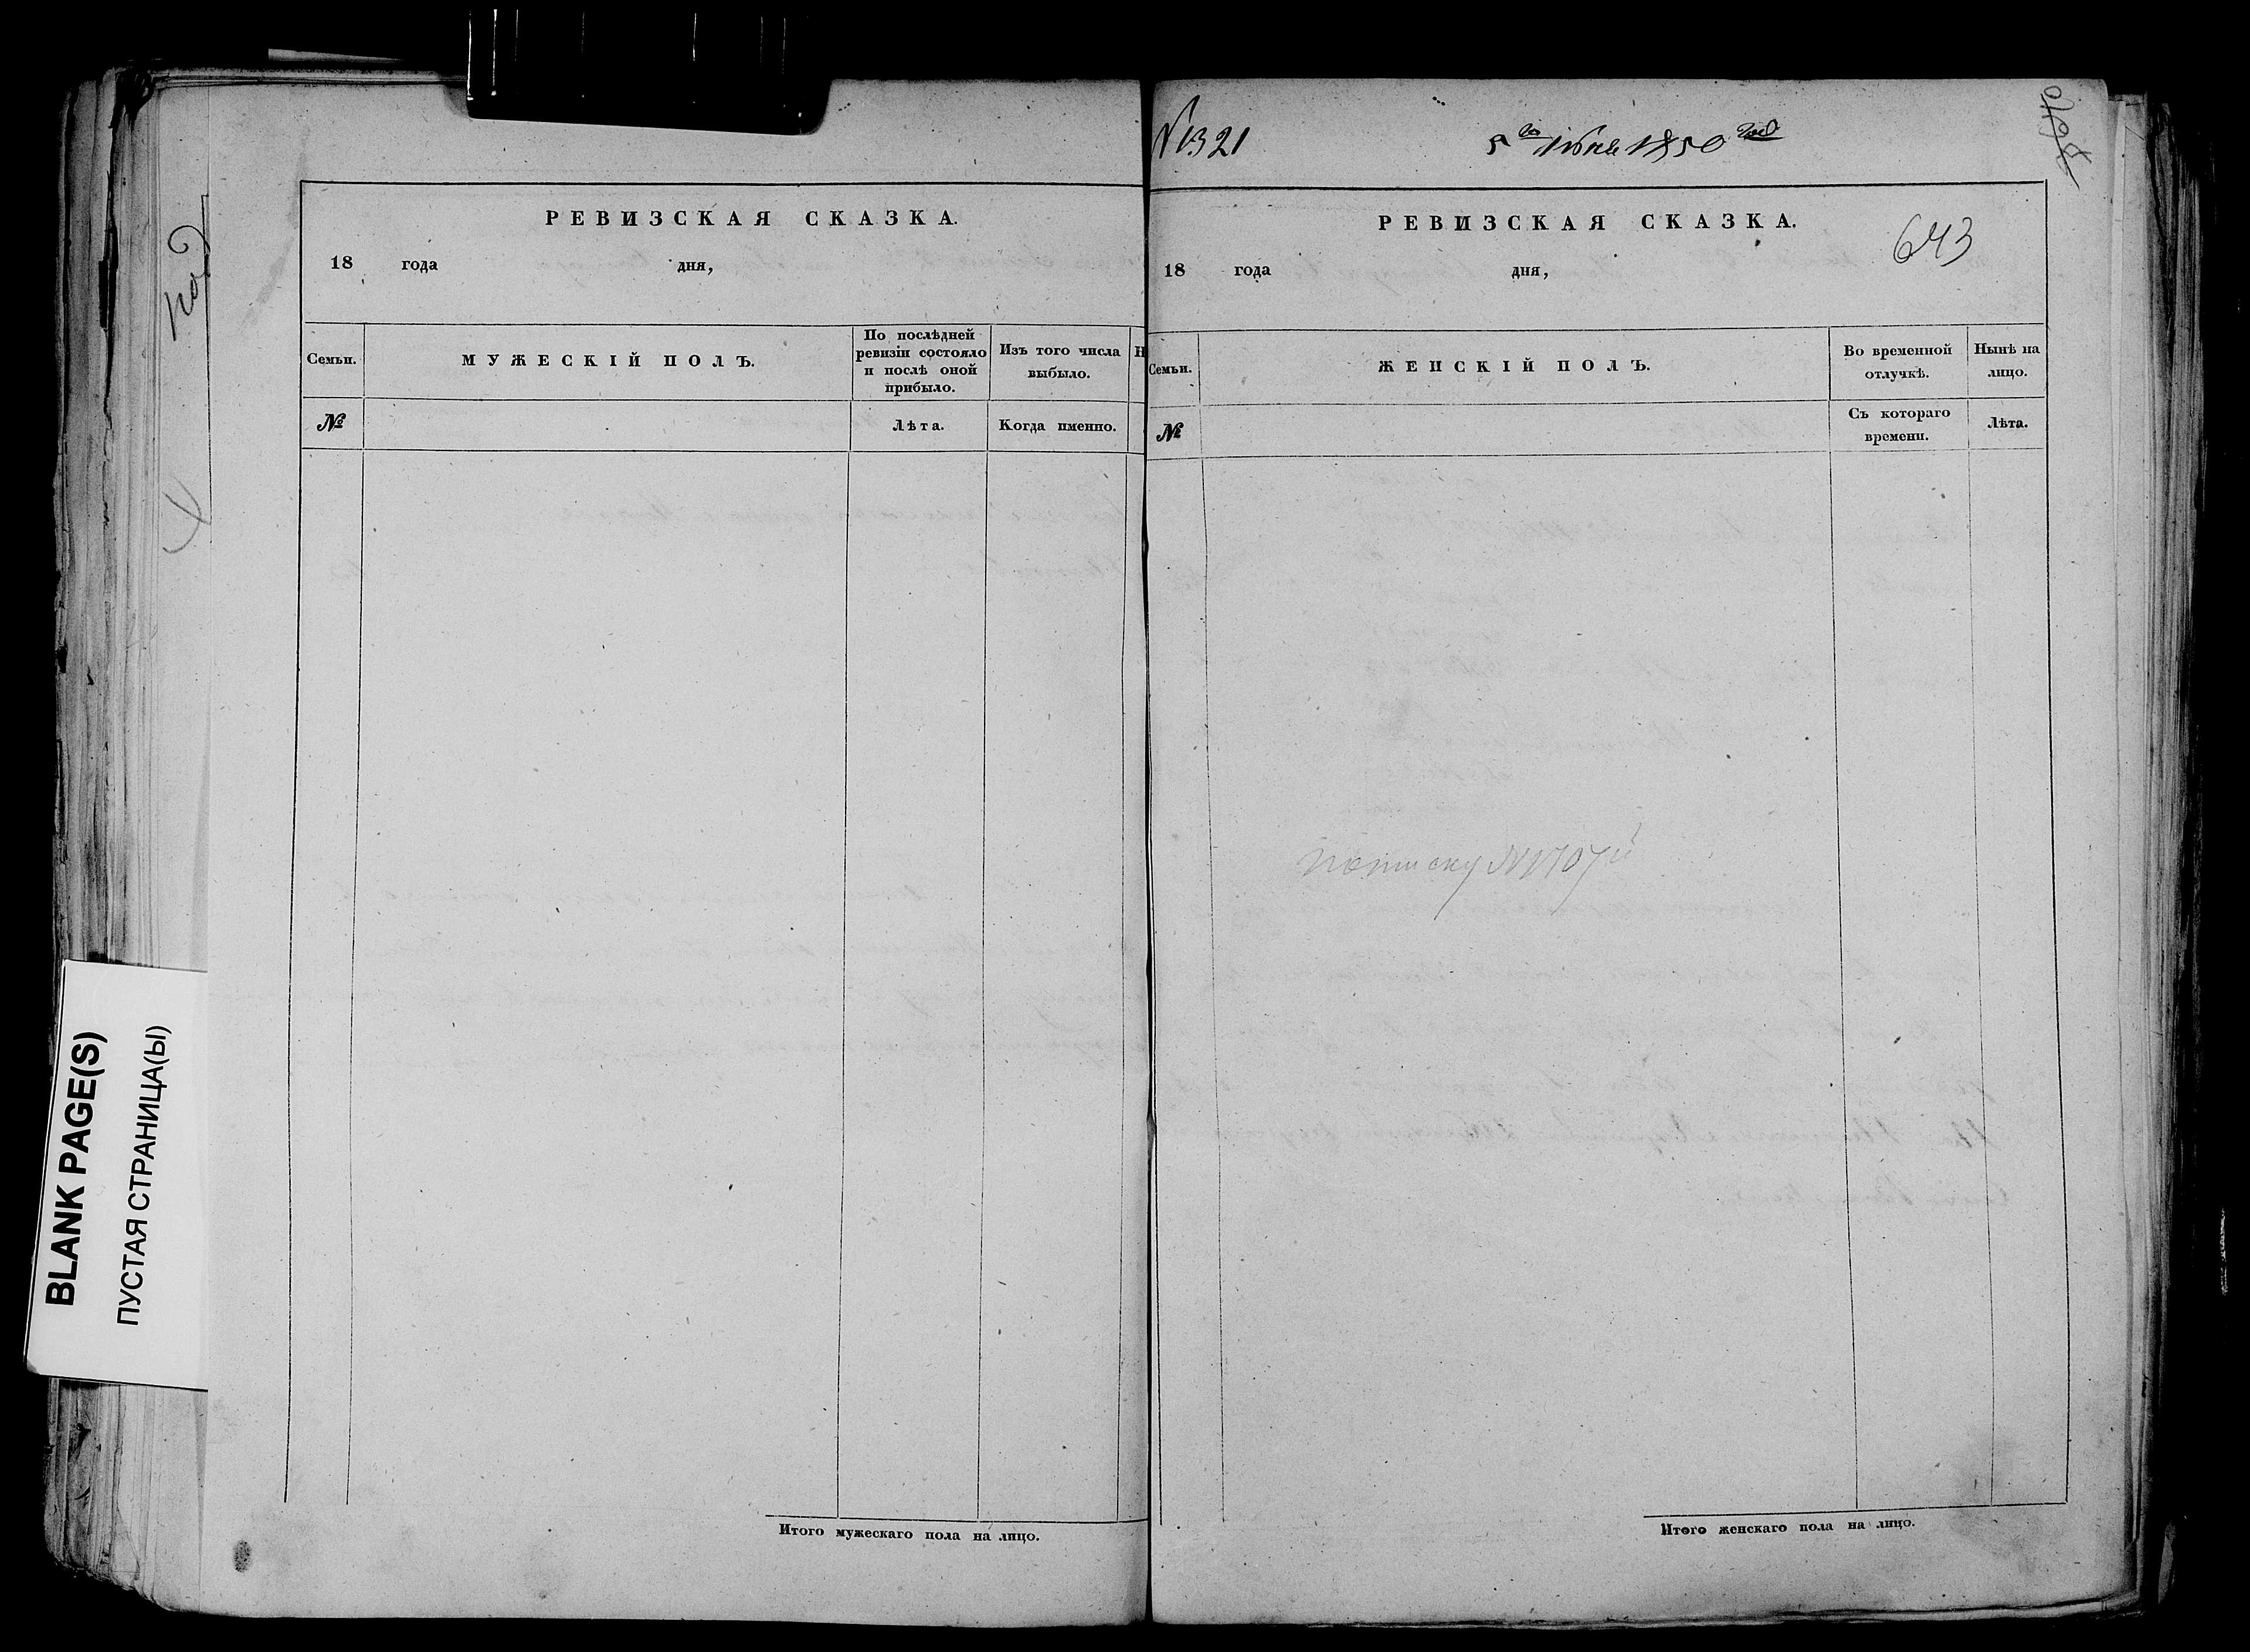 N 1321
5го Июня 1850 года
РЕВИЗСКАЯ СКАЗКА.
18 года дня,
Семьи.
МУЖЕСКІЙ ПОЛЪ.
По послѣдней
ревизіи состояло
и послѣ оной
прибыло.
Изъ того числа
выбыло.
Н
№
Лѣта.
Когда именно.
Итого мужескаго пола на лицо.
РЕВИЗСКАЯ СКАЗКА.
643
18 года дня,
Семьи.
ЖЕНСКІЙ ПОЛЪ.
Во временной
отлучкѣ.
Нынѣ на
лицо.
№
Съ котораго
времени.
Лѣта.
Итого женскаго пола на лицо.
BLANK PAGE(S)
ПУСТАЯ СТРАНИЦА(Ы)